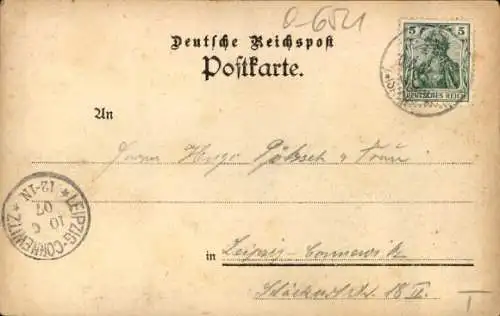 0-6521
Deutsche Reichspost
Postkarte.
5 5
DEUTSCHES REICH
An
Herrn Hugo & Frau
LEIPZIG-CONNEWITZ
10 6
07
12-1N
in Leipzig-Connewitz
18 II.